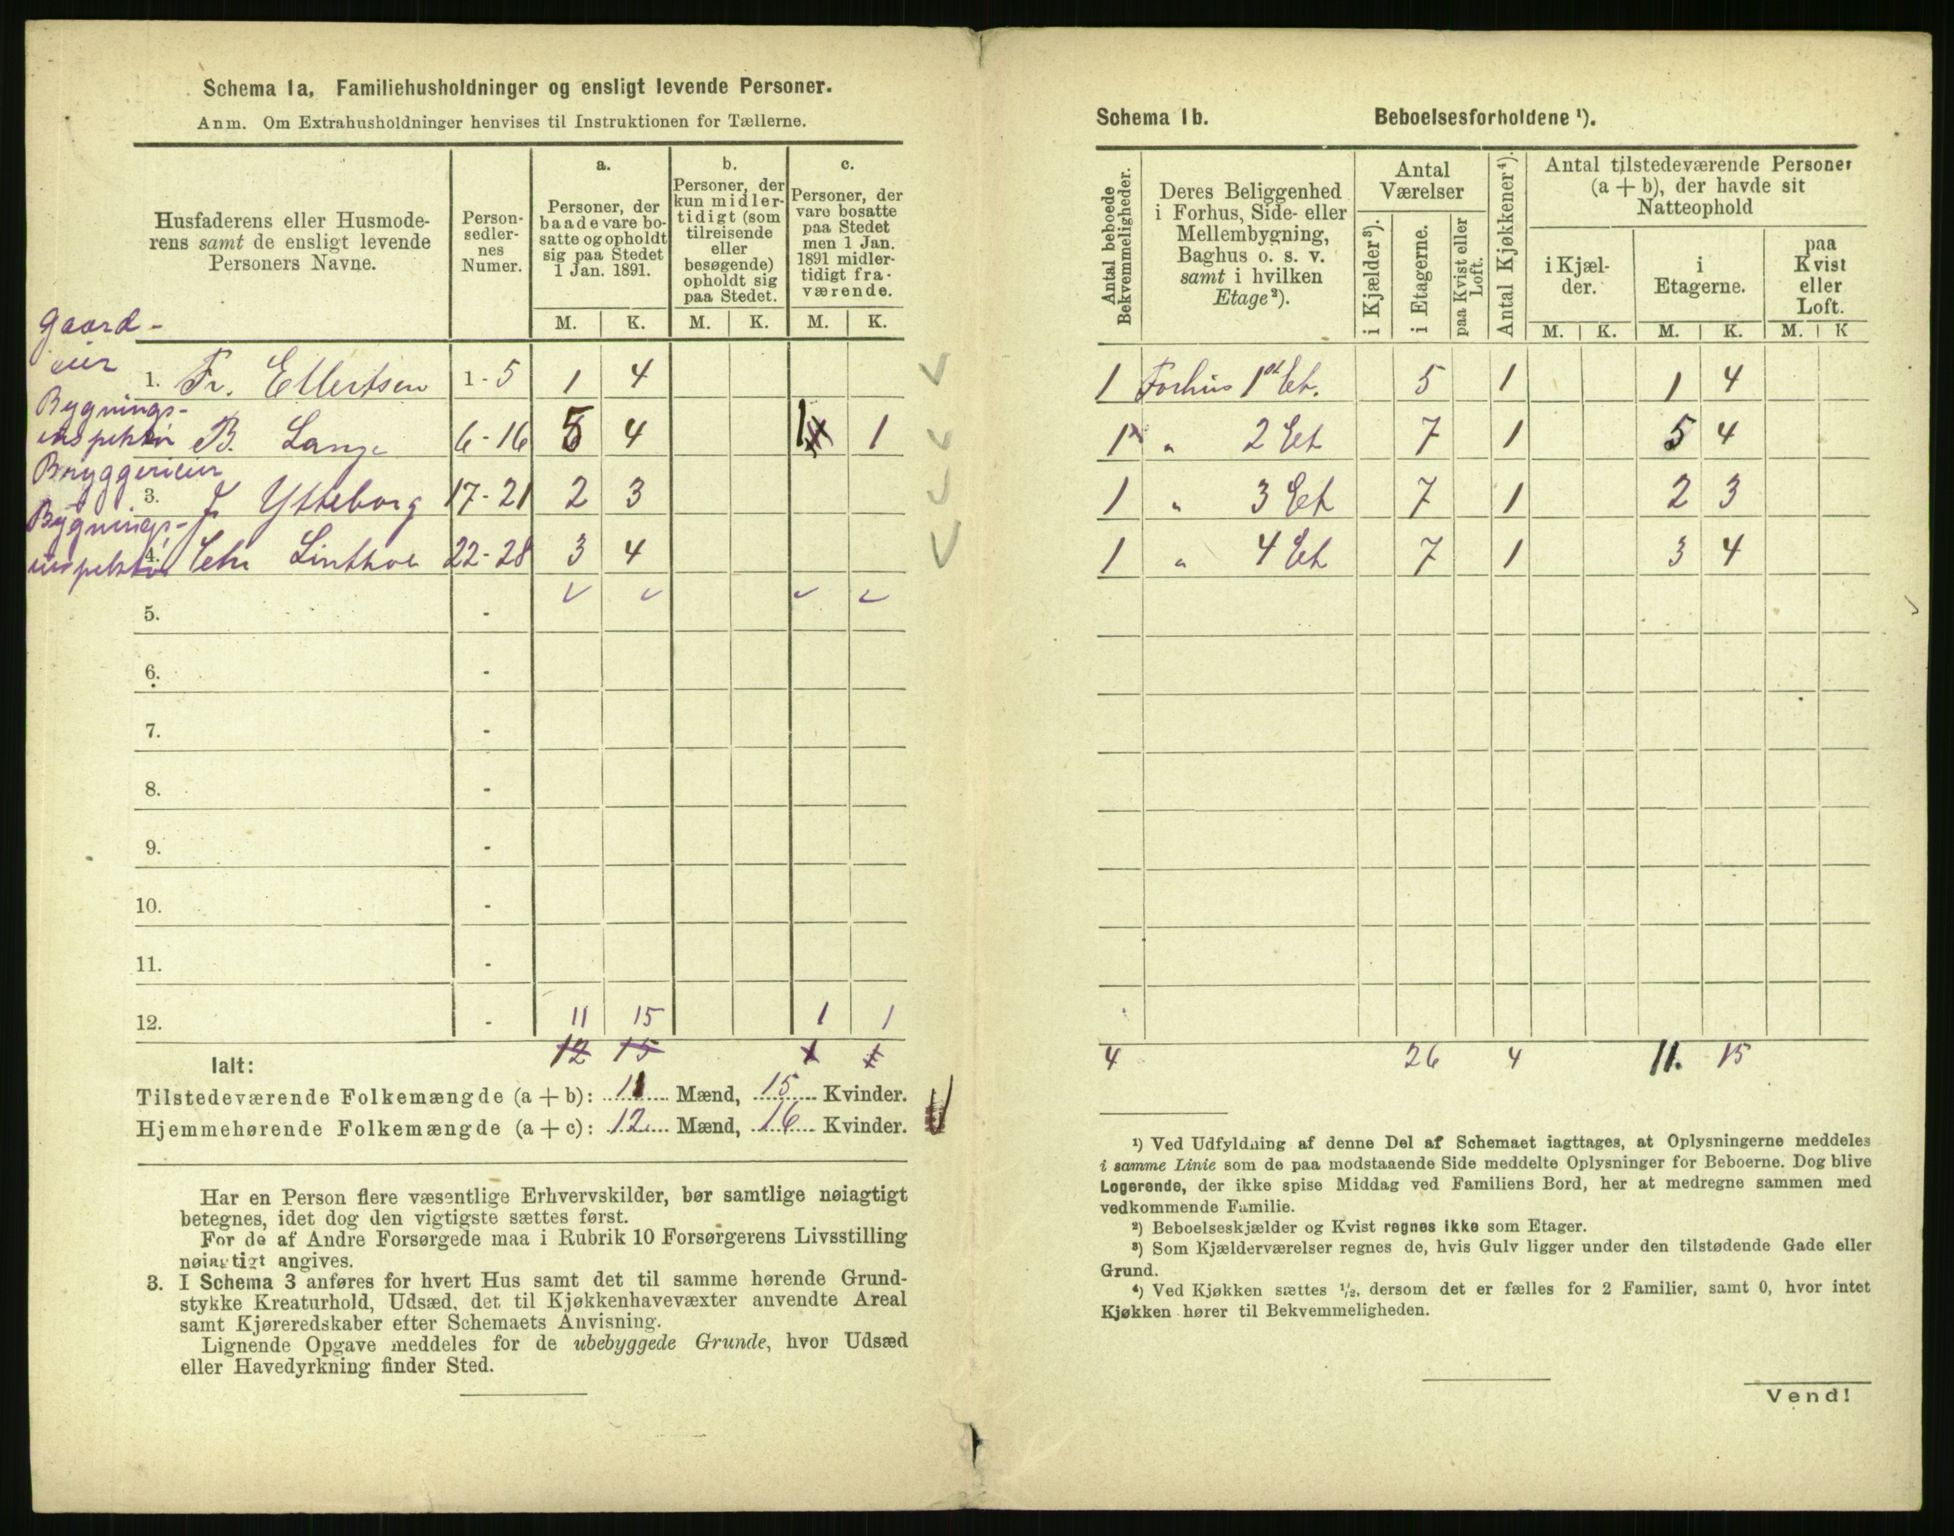 Schema 1a, Familiehusholdninger og ensligt levende Personer.
Anm. Om Extrahusholdninger henvises til Instruktionen for Tællerne.
Husfaderens eller Husmode-
rens samt de ensligt levende
Personers Navne.
Person-
sedler-
nes
Numer.
a.
Personer, der
baade vare bo-
satte og opholdt
sig paa Stedet
1 Jan. 1891.
b.
Personer, der
kun midler-
tidigt (som
tilreisende
eller
besøgende)
opholdt sig
paa Stedet.
c.
Personer, der
vare bosatte
paa Stedet
men 1 Jan.
1891 midler-
tidigt fra-
værende.
M. K. M. K. M. K.
Gaard-
eier
1. Fr. Ellertsen 1-5 1 4
Bygnings-
inspektør B. Lange 6-16 5 4 1 1
Bryggerieier
3. J. Ytteborg 17-21 2 3
Bygnings-
inspektør 4. Chr Linthoe 22-28 3 4
5. -
6. -
7. -
8. -
9. -
10. -
11. -
12. - 11 15 1 1
Ialt: 12 15 1 1
Tilstedeværende Folkemængde (a + b): 11 Mænd, 15 Kvinder.
Hjemmehørende Folkemængde (a + c): 12 Mænd, 16 Kvinder.
Har en Person flere væsentlige Erhvervskilder, bør samtlige nøiagtigt
betegnes, idet dog den vigtigste sættes først.
For de af Andre Forsørgede maa i Rubrik 10 Forsørgerens Livsstilling
nøiagtigt angives.
3. I Schema 3 anføres for hvert Hus samt det til samme hørende Grund-
stykke Kreaturhold, Udsæd, det til Kjøkkenhavevæxter anvendte Areal
samt Kjøreredskaber efter Schemaets Anvisning.
Lignende Opgave meddeles for de ubebyggede Grunde, hvor Udsæd
eller Havedyrkning finder Sted.
Schema 1b. Beboelsesforholdene ¹).
Antal beboede
Bekvemmeligheder.
Deres Beliggenhed
i Forhus, Side- eller
Mellembygning,
Baghus o. s. v.
samt i hvilken
Etage ²).
Antal
Værelser
i Kjælder ³).
i Etagerne.
paa Kvist eller
Loft.
Antal Kjøkkener ⁴).
Antal tilstedeværende Personer
(a + b), der havde sit
Natteophold
i Kjæl-
der.
i
Etagerne.
paa
Kvist
eller
Loft.
M. K. M. K. M. K
1 Forhus 1st Et. 5 1 1 4
1 " 2 Et 7 1 5 4
1 " 3 Et 7 1 2 3
1 " 4 Et 7 1 3 4
4 26 4 11. 15
¹) Ved Udfyldning af denne Del af Schemaet iagttages, at Oplysningerne meddeles
i samme Linie som de paa modstaaende Side meddelte Oplysninger for Beboerne. Dog blive
Logerende, der ikke spise Middag ved Familiens Bord, her at medregne sammen med
vedkommende Familie.
²) Beboelseskjælder og Kvist regnes ikke som Etager.
³) Som Kjælderværelser regnes de, hvis Gulv ligger under den tilstødende Gade eller
Grund.
⁴) Ved Kjøkken sættes ½, dersom det er fælles for 2 Familier, samt 0, hvor intet
Kjøkken hører til Bekvemmeligheden.
Vend!